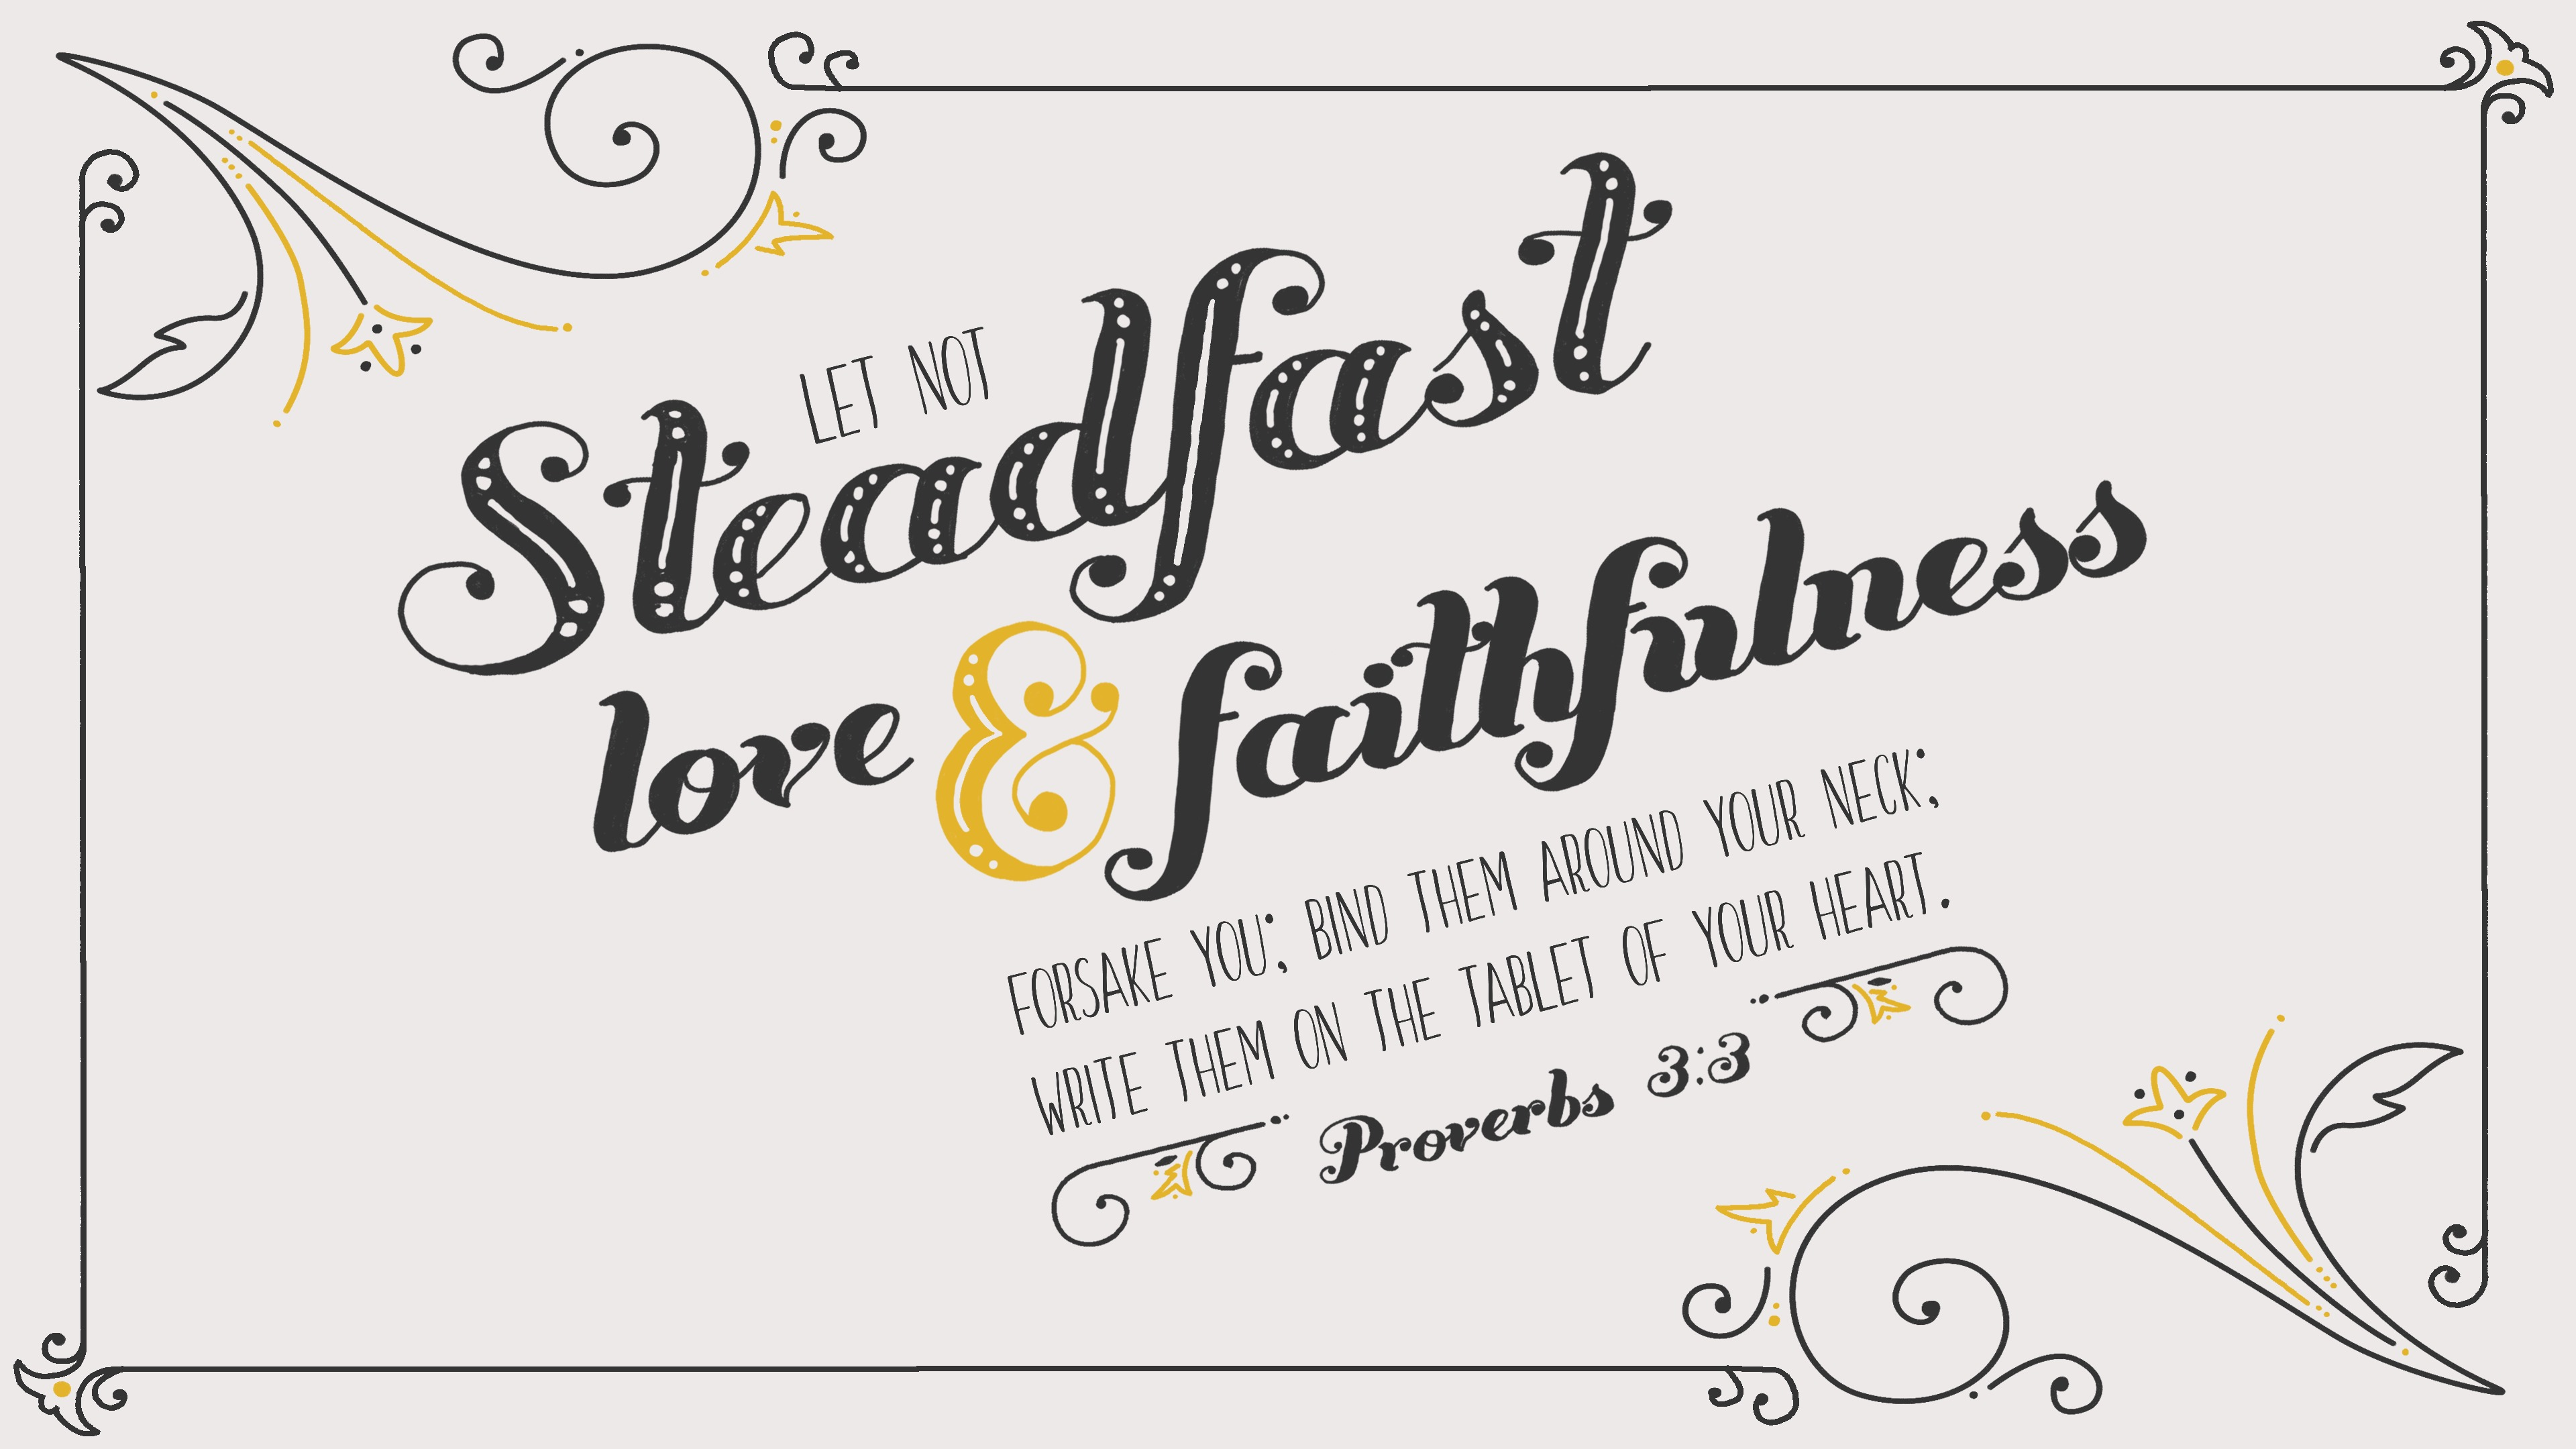 LET NOT
Steadfast
love & faithfulness
FORSAKE YOU; BIND THEM AROUND YOUR NECK;
WRITE THEM ON THE TABLET OF YOUR HEART.
Proverbs 3:3